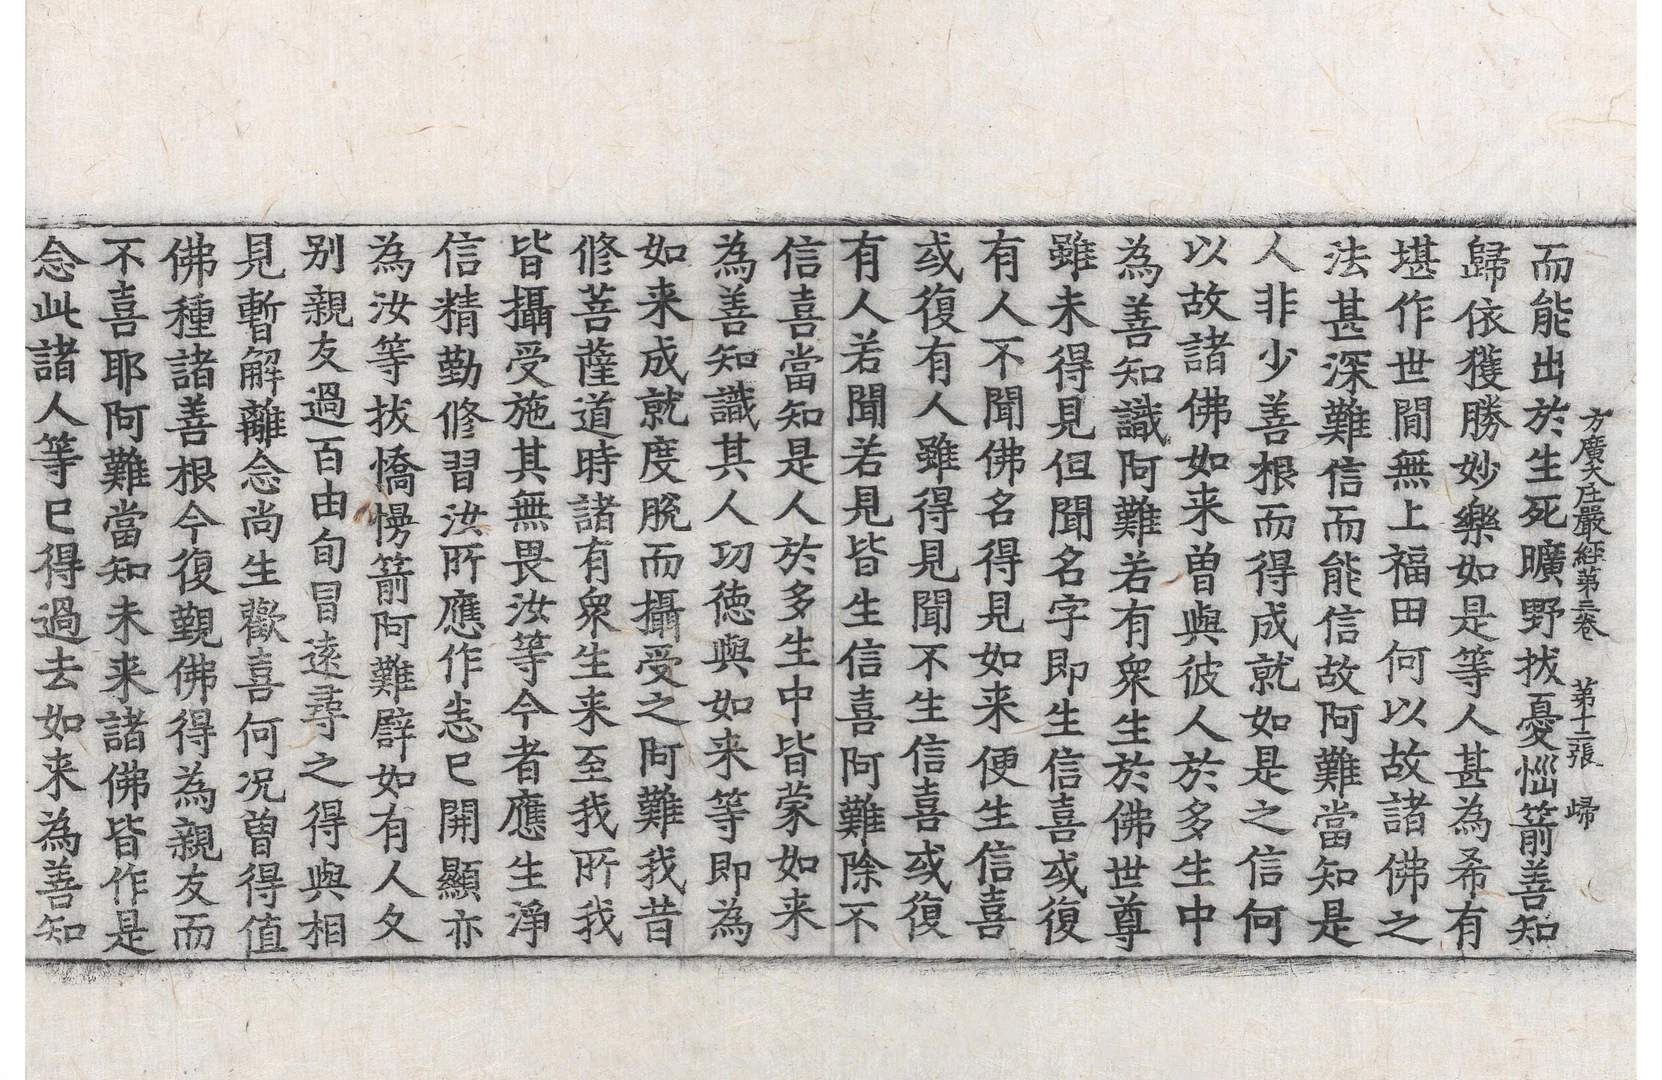 方廣大庄嚴經第二卷　第十二張　歸
而能出於生死曠野拔憂惱箭善知
歸依獲勝妙樂如是等人甚為希有
堪作世間無上福田何以故諸佛之
法甚深難信而能信故阿難當知是
人非少善根而得成就如是之信何
以故諸佛如来曽與彼人於多生中
為善知識阿難若有衆生於佛世尊
雖未得見但聞名字即生信喜或復
有人不聞佛名得見如来便生信喜
或復有人雖得見聞不生信喜或復
有人若聞若見皆生信喜阿難除不
信喜當知是人於多生中皆蒙如来
為善知識其人功徳與如来等即為
如来成就度脫而攝受之阿難我昔
修菩薩道時諸有衆生来至我所我
皆攝受施其無畏汝等今者應生淨
信精勤修習汝所應作悉已開顯亦
為汝等拔憍慢箭阿難譬如有人久
别親友過百由旬冒逺尋之得與相
見暫解離念尚生歡喜何况曽得值
佛種諸善根今復覲佛得為親友而
不喜耶阿難當知未来諸佛皆作是
念此諸人等已得過去如来為善知